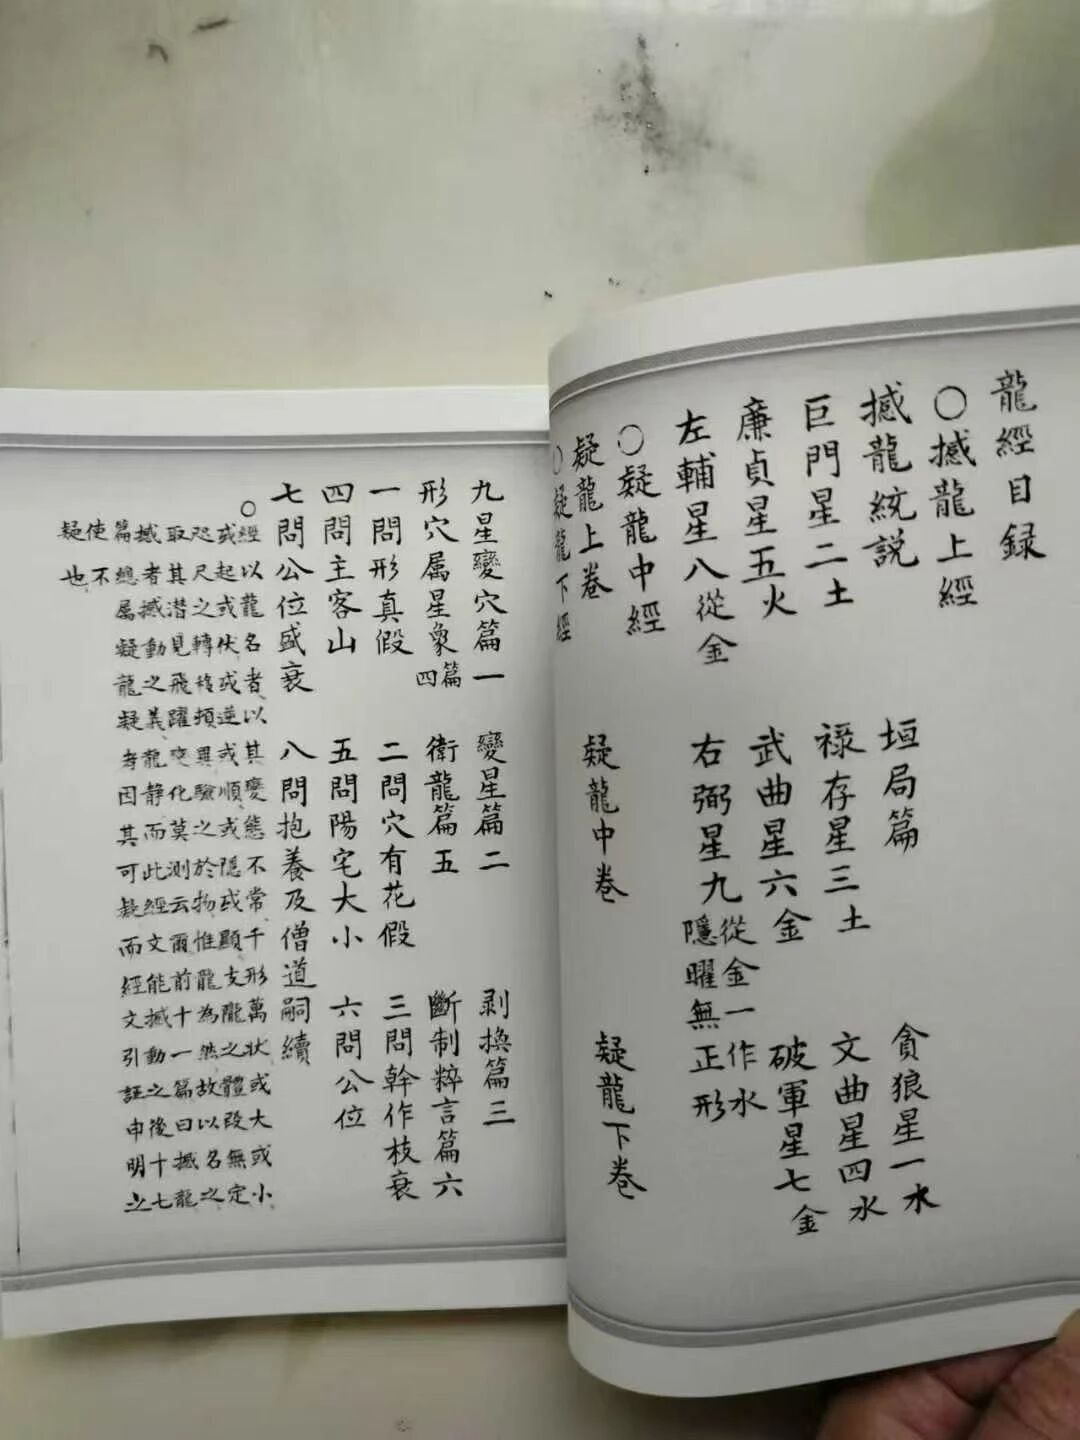 龍經目録
○撼龍上經
撼龍統説 垣局篇 貪狼星一水
巨門星二土 禄存星三土 文曲星四水
廉貞星五火 武曲星六金 破軍星七金
左輔星八從金 右弼星九從金一作水隱曜無正形
○疑龍中經
疑龍上卷 疑龍中卷 疑龍下卷
○疑龍下經
九星變穴篇一 變星篇二 剥換篇三
形穴属星象篇四 衛龍篇五 斷制粹言篇六
一問形真假 二問穴有花假 三問幹作枝衰
四問主客山 五問陽宅大小 六問公位
七問公位盛衰 八問抱養及僧道嗣續
○經以龍名者以其變態不常千形萬状或大或小
或起或伏或逆或順或隱或顯支隴之體段無定
咫尺之轉移頓異驗之於物惟龍為然故以名之
取其潜見飛躍變化莫測云爾前十一篇曰撼龍
撼者撼動之義龍静而此經文能撼動之後十七
篇總属疑龍疑者因其可疑而經文引証申明之
使不
疑也